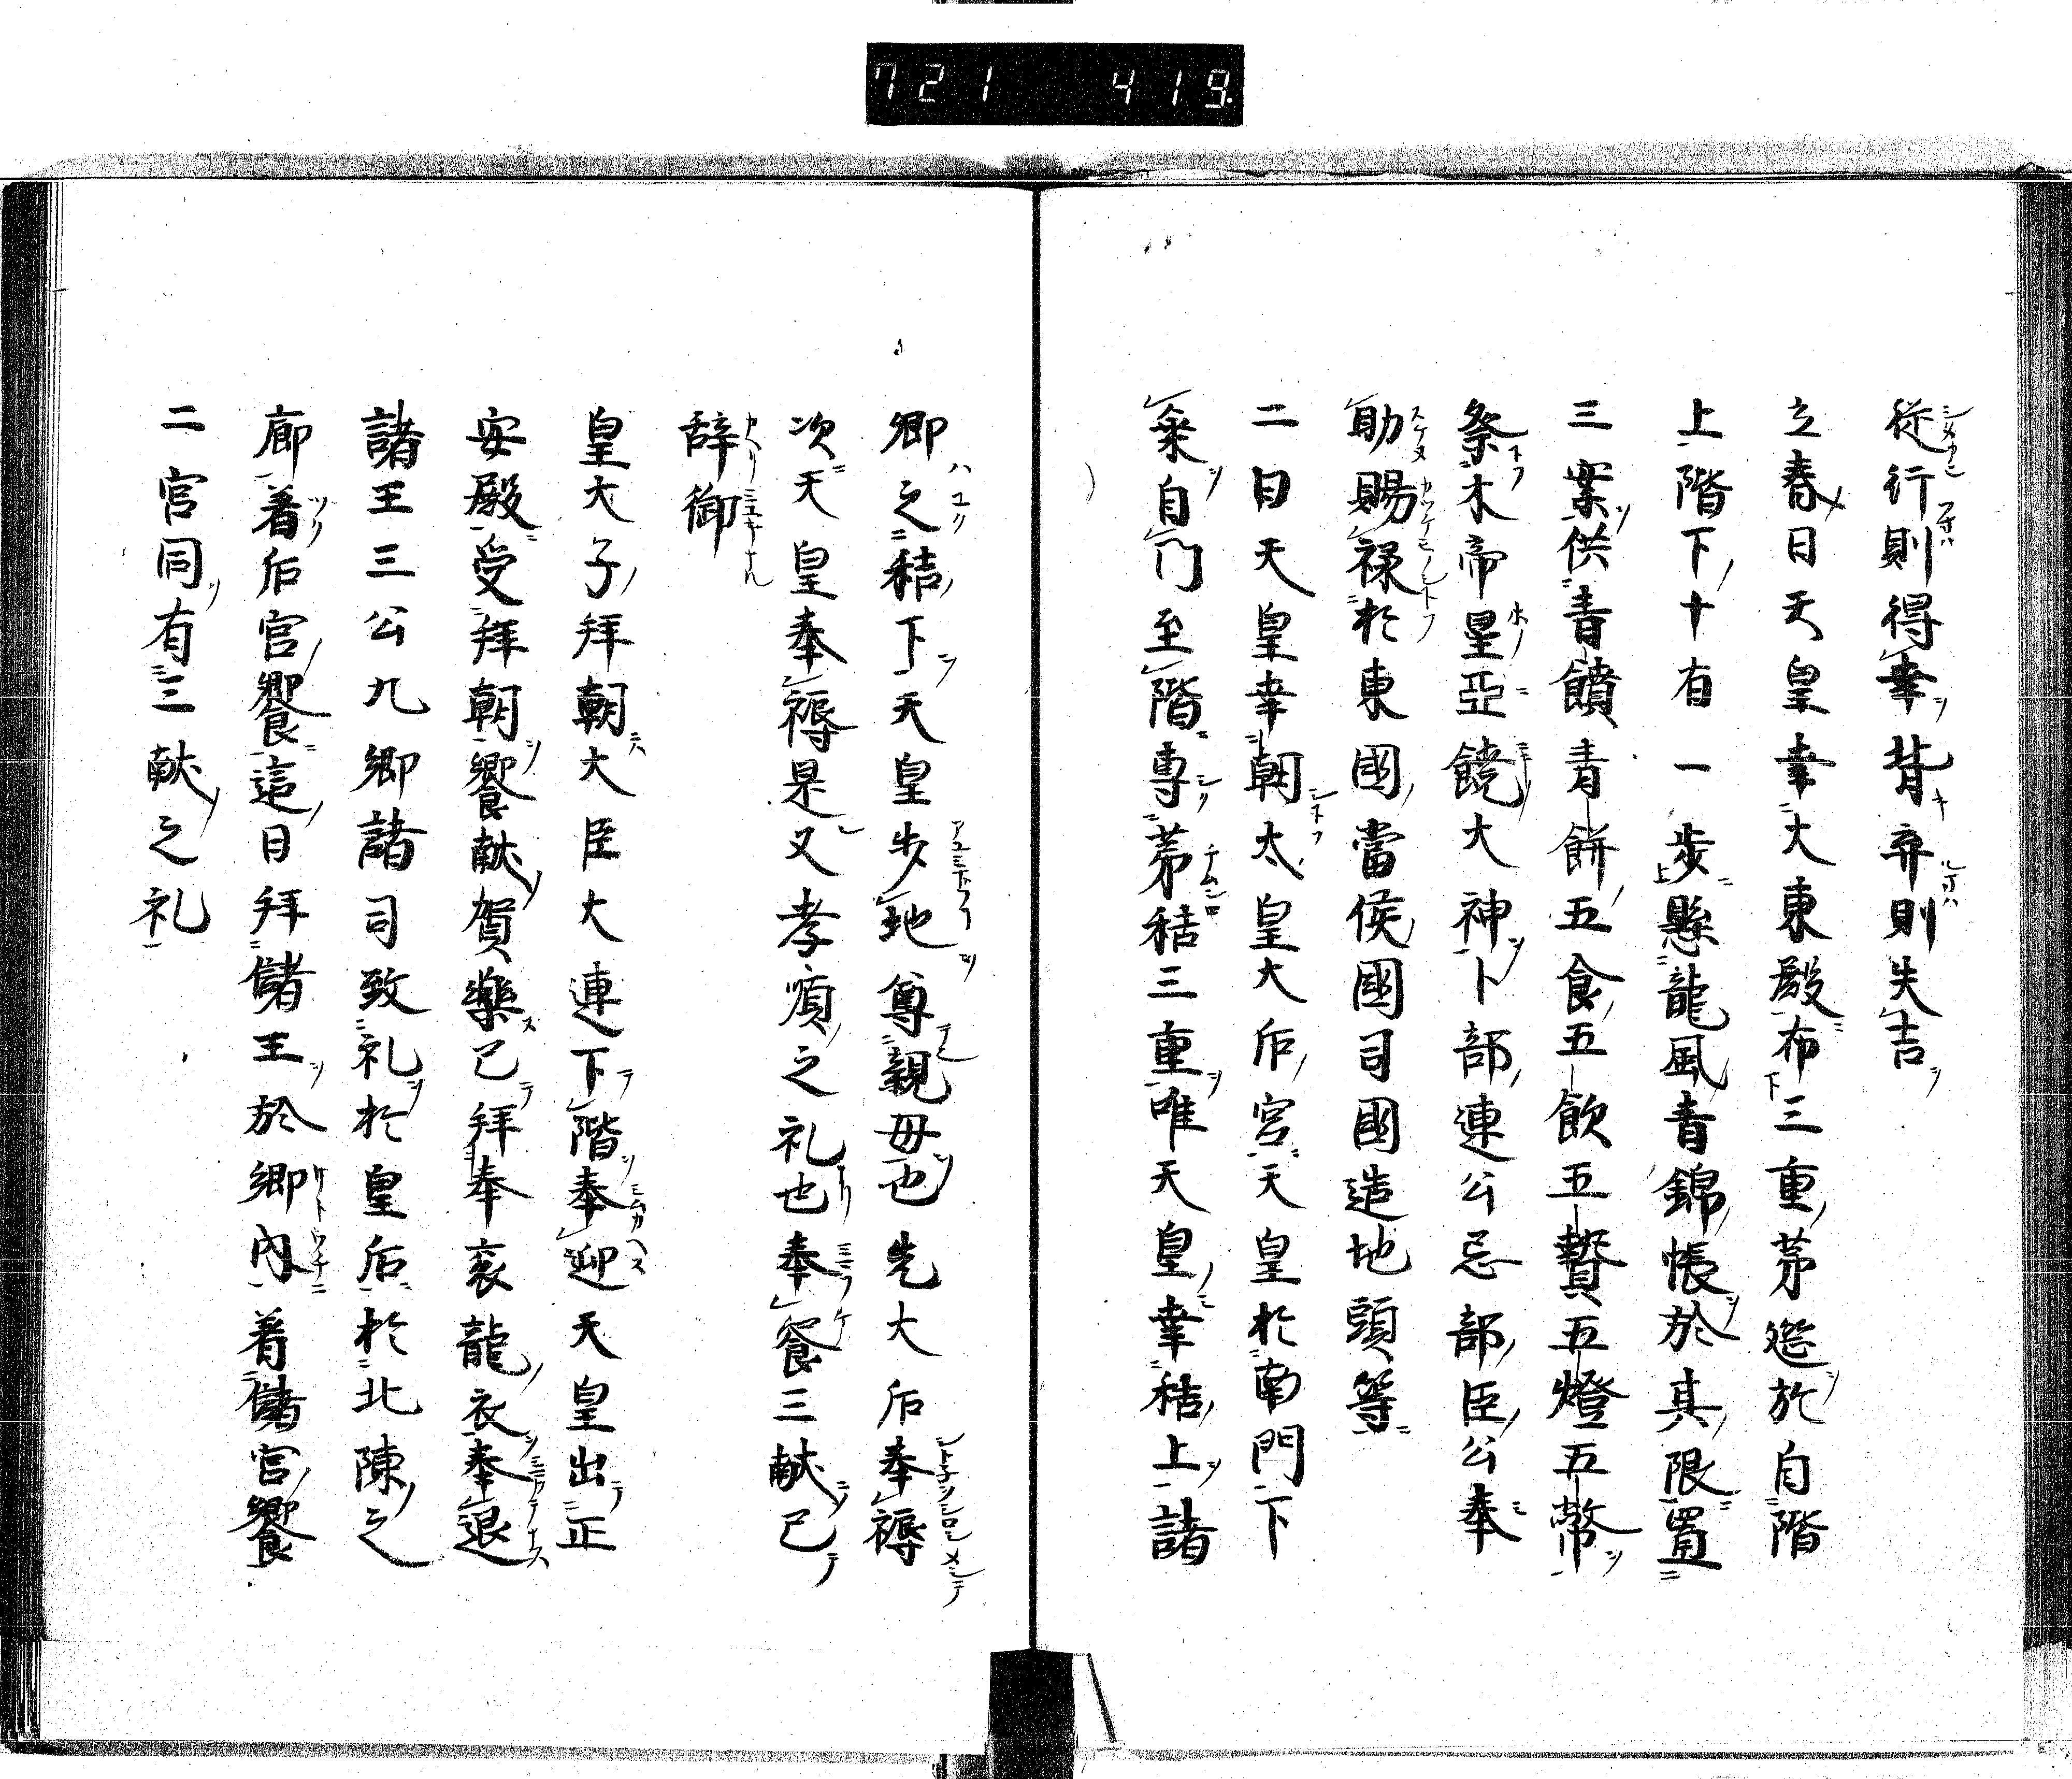 721 419
從行則得幸背弃則失吉
立春日天皇幸大東殿布三重茅於自階
上階下十有一歩懸龍風青錦帳於其限置
三案供青饋青餅五食五飲五贄五燈五幣
祭木帝星亞饒大神卜部連公忌部臣公奉
助賜禄於東國當侯國司國造地頭等
二日天皇幸朝太皇大后宮天皇於南門下
自門至階專茅秸三重唯天皇幸秸上諸
卿之秸下天皇歩地尊親毋也先大后奉褥
次天皇奉褥是又孝順之礼也奉餐三献已
辞御
皇大子拜朝大臣大連下階奉迎天皇出正
安殿受拜朝饗献賀樂已拜奉衮龍衣奉退
諸王三公九卿諸司致礼於皇后於北陳之
廊着后宮饗這日拜儲王於卿内着儲宮饗
二宮同有三献之礼